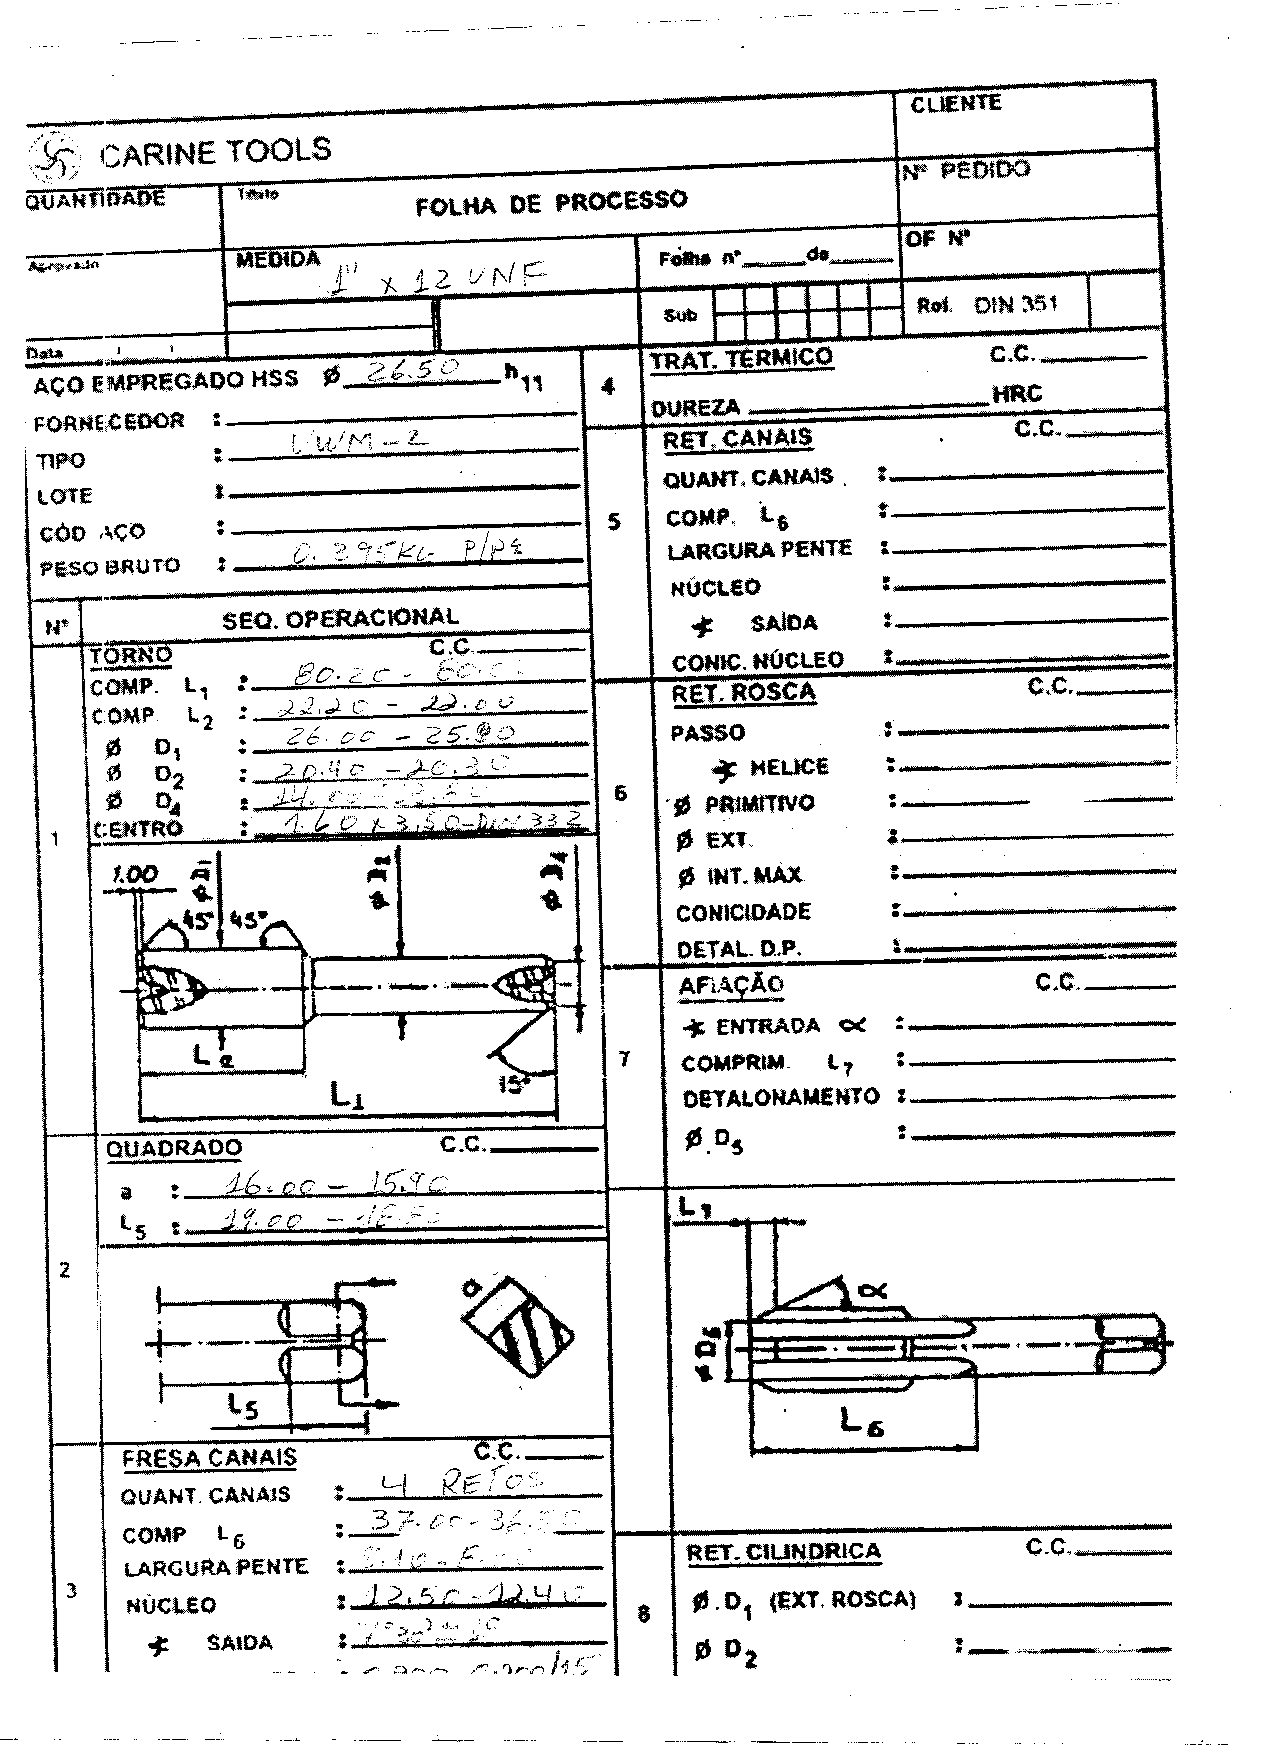 CLIENTE
CARINE TOOLS
Nº PEDIDO
QUANTIDADE
Título
FOLHA DE PROCESSO
OF Nº
Aprovado
MEDIDA
1" x 12 UNF
Folha nº ____ de ____
Sub
Ref. DIN 351
Data / /
AÇO EMPREGADO HSS Ø 26.50 h11
FORNECEDOR :
TIPO : VWM-2
LOTE :
CÓD AÇO :
PESO BRUTO : 0.395KG P/PÇ
Nº
SEQ. OPERACIONAL
1
TORNO C.C.
COMP. L1 : 80.20 -
COMP L2 : 22.20 - 22.00
Ø D1 : 26.00 - 25.90
Ø D2 : 20.40 - 20.30
Ø D4 : 14.00
CENTRO : 1.60 x 3.50 - DIN 332
1.00
Ø D1
Ø D2
Ø D4
45° 45°
L2
15°
L1
2
QUADRADO C.C.
a : 16.00 - 15.90
L5 : 19.00 - 18.80
a
L5
3
FRESA CANAIS C.C.
QUANT. CANAIS : 4 RETOS
COMP L6 : 37.00 - 36.80
LARGURA PENTE : 8.10 -
NÚCLEO : 12.50 - 12.40
SAIDA :
4
TRAT. TÉRMICO C.C.
DUREZA HRC
5
RET. CANAIS C.C.
QUANT. CANAIS :
COMP. L6 :
LARGURA PENTE :
NÚCLEO :
SAÍDA :
CONIC. NÚCLEO :
6
RET. ROSCA C.C.
PASSO :
HELICE :
Ø PRIMITIVO :
Ø EXT. :
Ø INT. MÁX :
CONICIDADE :
DETAL. D.P. :
7
AFIAÇÃO C.C.
ENTRADA ∝ :
COMPRIM. L7 :
DETALONAMENTO :
Ø D5 :
L7
∝
Ø D5
L6
8
RET. CILINDRICA C.C.
Ø D1 (EXT. ROSCA) :
Ø D2 :